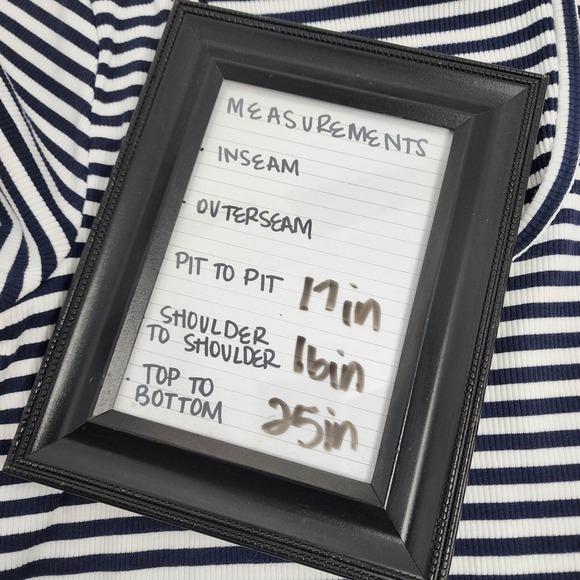 MEASUREMENTS
INSEAM
OUTERSEAM
PIT TO PIT 17in
SHOULDER
TO SHOULDER 16in
TOP TO
BOTTOM 25in